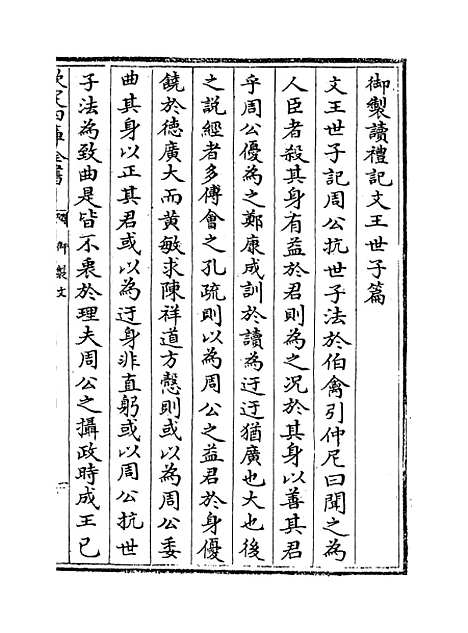 御製讀禮記文王世子篇
文王世子記周公抗世子法於伯禽引仲尼曰聞之為
人臣者殺其身有益於君則為之況於其身以善其君
乎周公優為之鄭康成訓於讀為迂迂猶廣也大也後
之説經者多傅會之孔疏則以為周公之益君於身優
饒於德廣大而黄敏求陳祥道方慤則或以為周公委
曲其身以正其君或以為迂身非直躬或以周公抗世
子法為致曲是皆不衷於理夫周公之攝政時成王已
欽定四庫全書
御製文
一